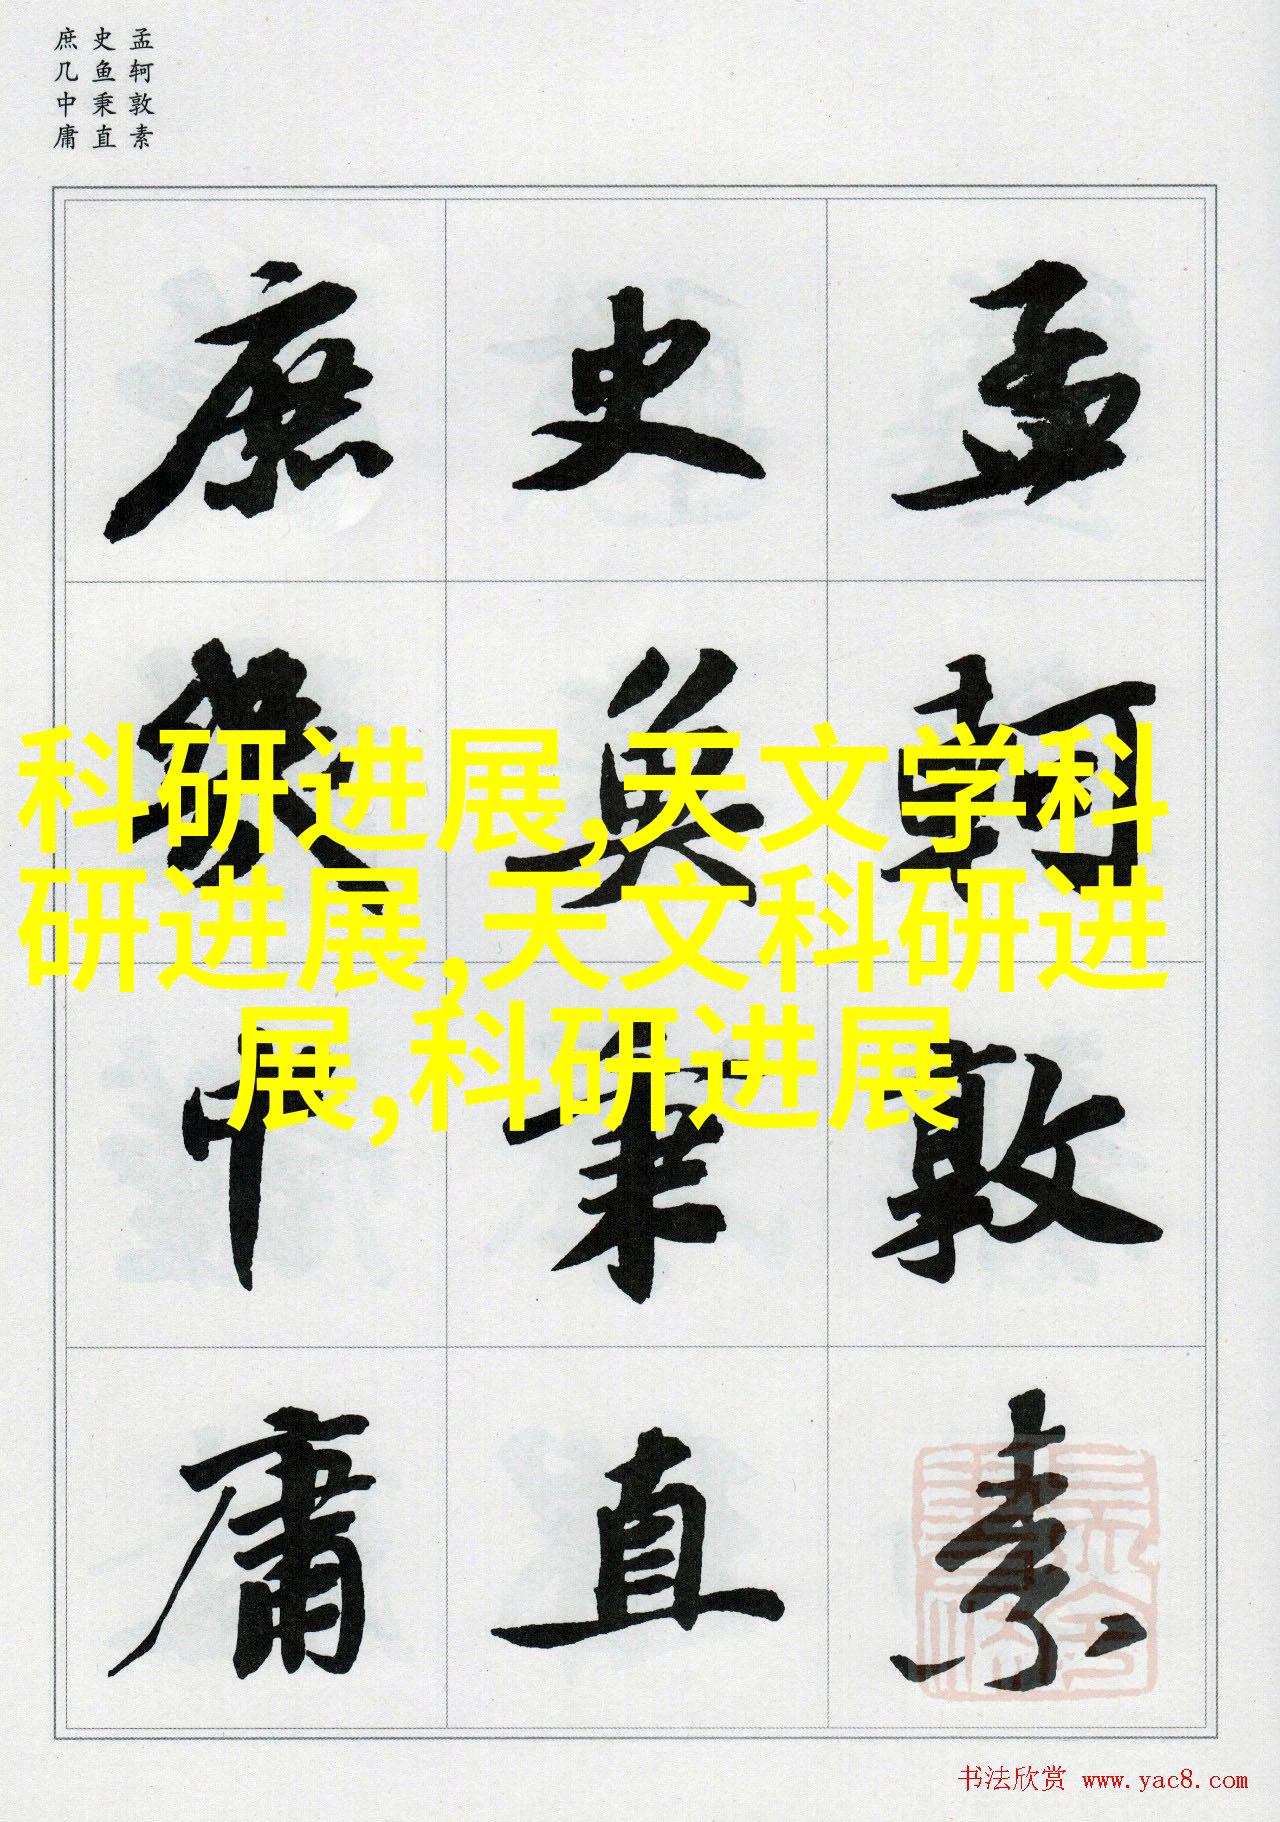 孟轲敦素
史鱼秉直
庶几中庸
孟軻敦素
史魚秉直
庶幾中庸
科研进展,天文学科
研进展,天文科研进
展,科研进展
书法欣赏 www.yac8.com